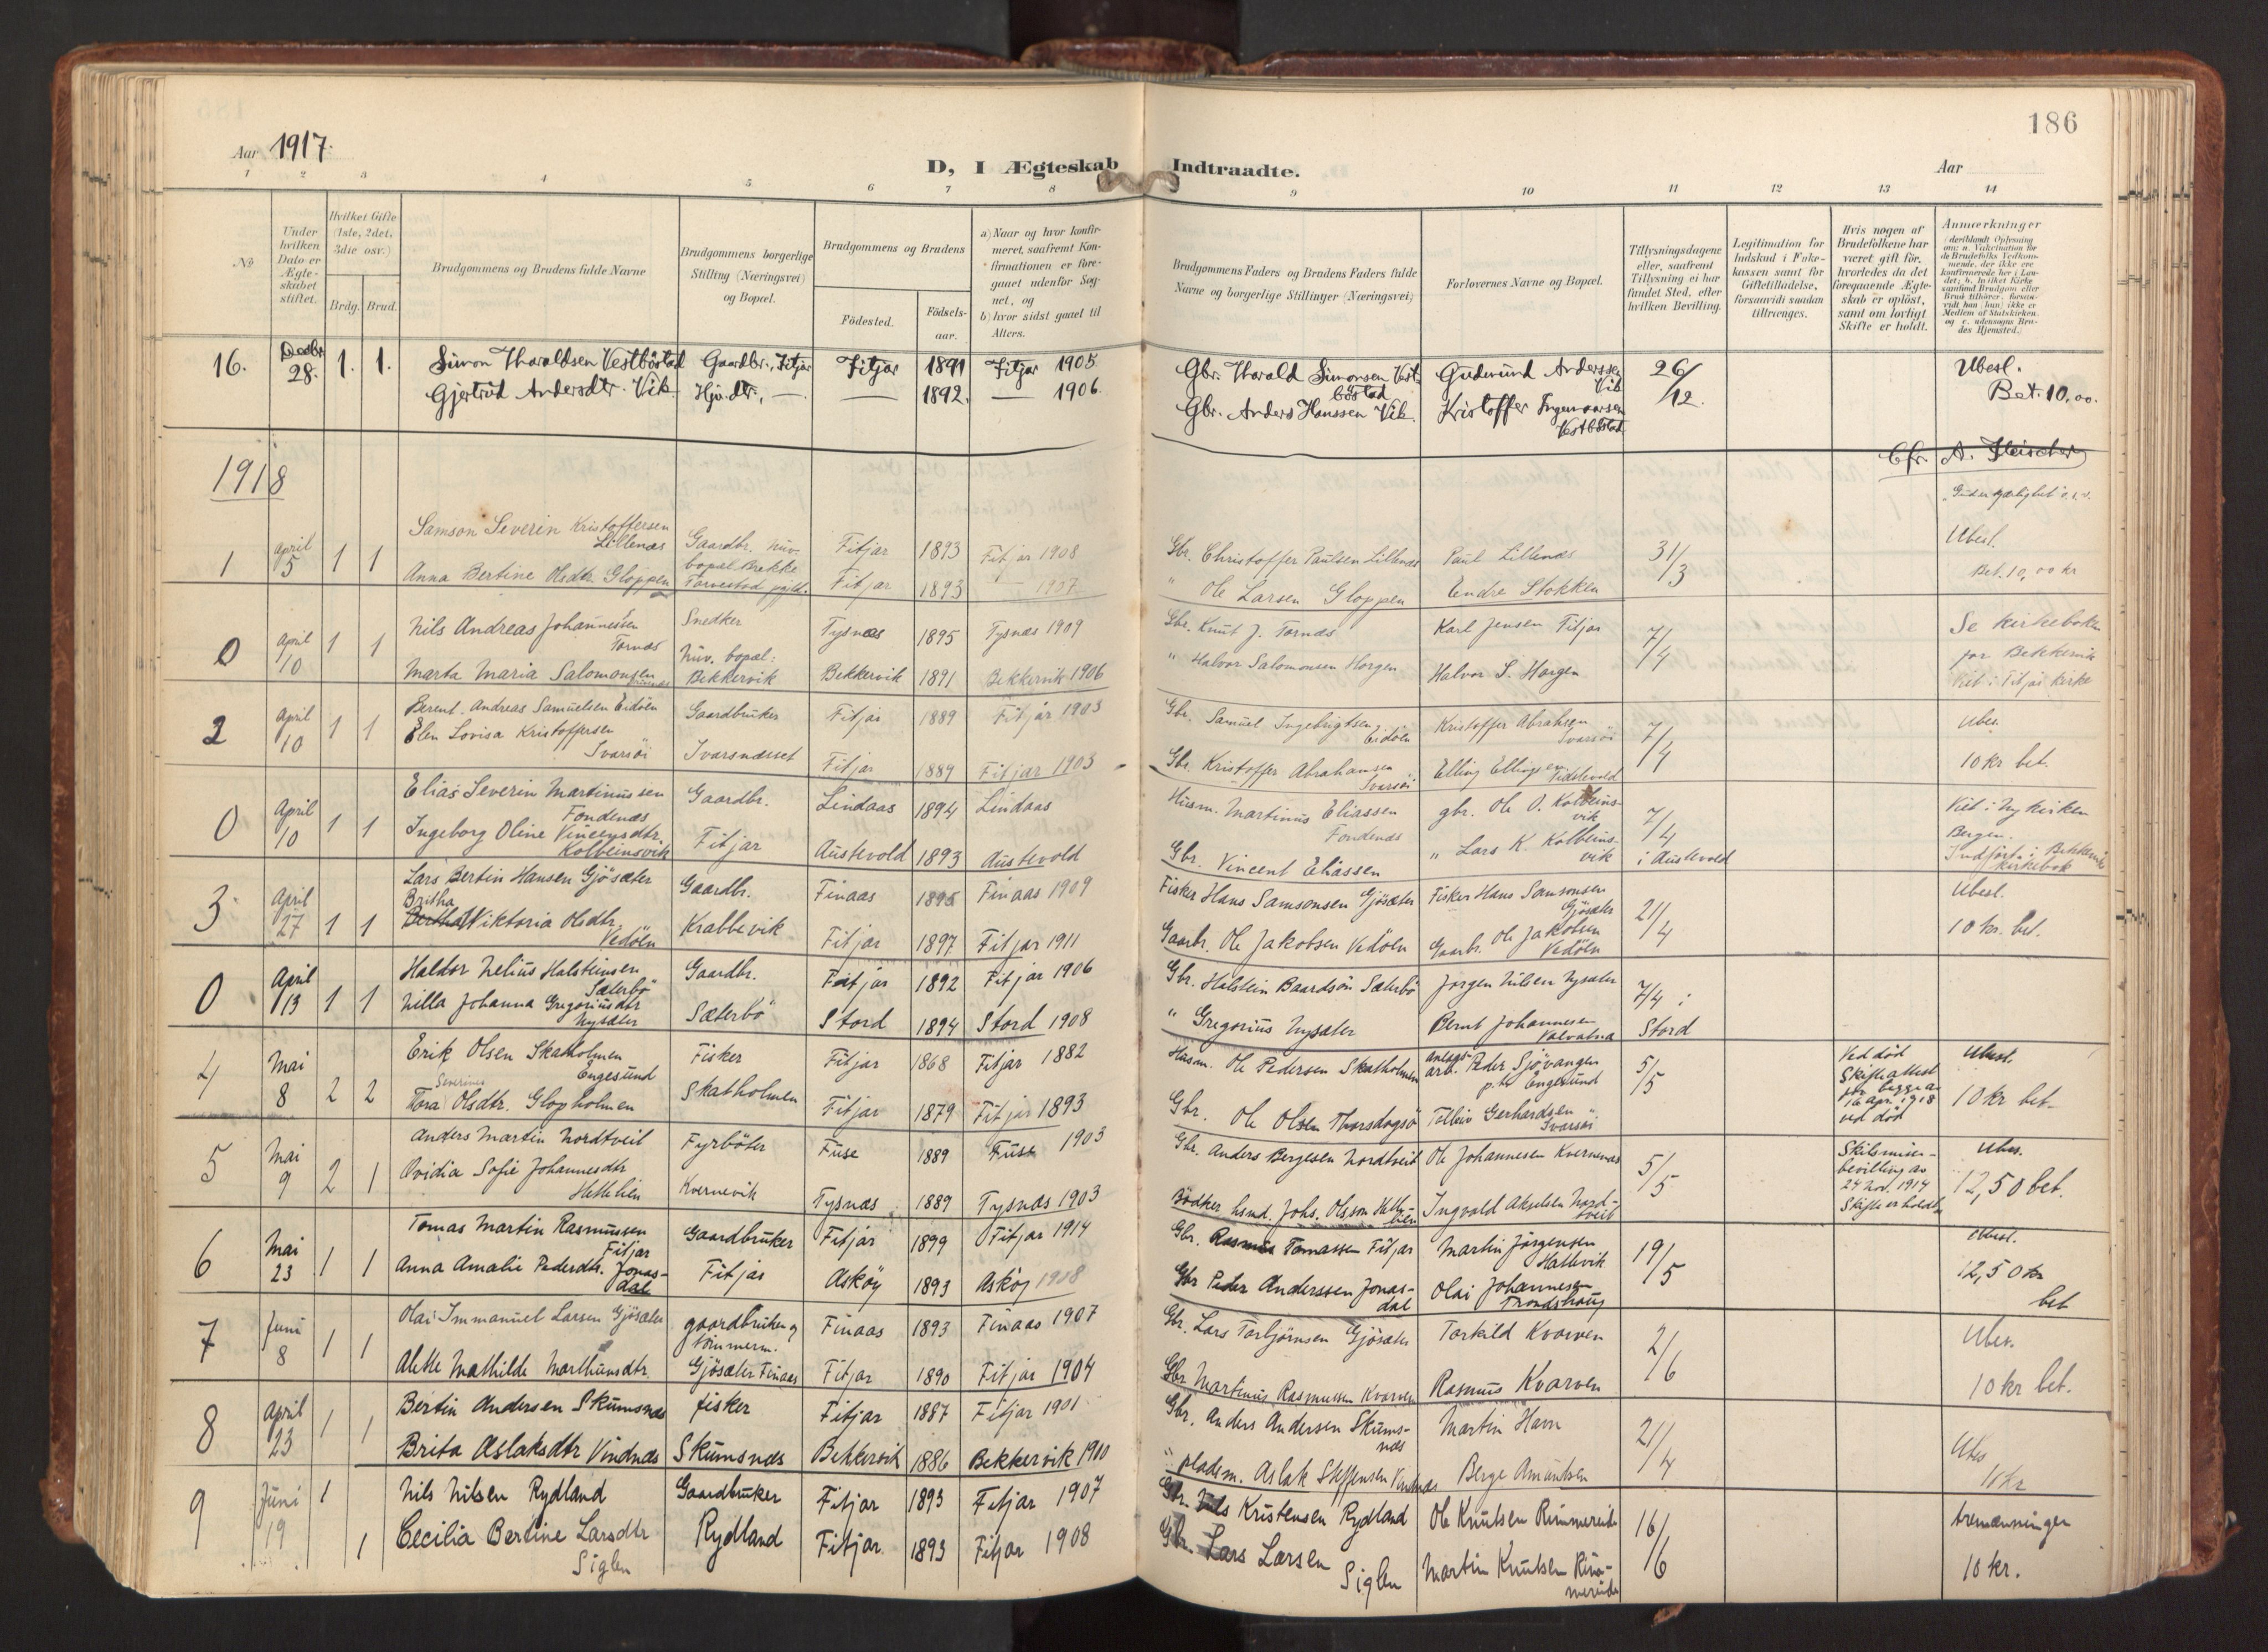 186
Aar 1917.
D, I Ægteskab Indtraadte.
Aar
1 2 3 4 5 6 7 8 9 10 11 12 13 14
No.
Under hvilken Dato er Ægteskabet stiftet.
Hvilket Gifte (1ste, 2det, 3die osv.)
Brdg. Brud.
Brudgommens og Brudens fulde Navne
Brudgommens borgerlige Stilling (Næringsvei) og Bopæl.
Brudgommens og Brudens
Födested. Födsels-aar.
a) Naar og hvor konfirmeret, saafremt Konfirmationen er foregaaet udenfor Sognet, og
b) hvor sidst gaaet til Alters.
Brudgommens Faders og Brudens Faders fulde Navne og borgerlige Stillinger (Næringsvei)
Forlovernes Navne og Bopæl.
Tillysningsdagene eller, saafremt Tillysning ei har fundet Sted, efter hvilken Bevilling.
Legitimation for Indskud i Enkekassen samt for Giftetilladelse, forsaavidt saadan tiltrænges.
Hvis nogen af Brudefolkene har været gift för, hvorledes da det foregaaende Ægteskab er oplöst, samt om lovligt Skifte er holdt.
Anmærkninger
16. Decbr 28. 1. 1. Simon Haraldsen Vestböstad Gaardbr., Fitjar Fitjar 1891 Fitjar 1905 Gbr. Harald Simonsen Vestböstad Gudmund Anderssen Vik 26/12. Ubesl.
Gjertrud Andersdtr. Vik. Hjv.dtr., — — 1892. — 1906. Gbr. Anders Hanssen Vik. Kristoffer Ingemarsen Vestböstad Bet. 10,00.
Cfr. A. Fleischer
1918
1 April 5 1 1 Samson Severin Kristoffersen Lillenæs Gaardbr. nuv. bopæl Brekke Fitjar 1893 Fitjar 1908 Gbr. Christoffer Paulsen Lillenæs Paul Lillenæs 31/3 Ubesl.
Anna Bertine Olsdtr. Gloppen Torvestad pgjld. Fitjar 1893 — 1907 " Ole Larsen Gloppen Endre Stokken Bet. 10,00 kr
0 April 10 1 1 Nils Andreas Johannessen Tornæs Snedker Tysnæs 1895 Tysnæs 1909 Gbr. Knut J. Tornæs Karl Jensen Fitjar 7/4 Se kirkeboken
Marta Maria Salomonsen nuv. bopæl: Bekkervik Bekkervik 1891 Bekkervik 1906 " Halvor Salomonsen Horgen Halvor S. Horgen for Bekkervik
Viet i Fitjar kirke
2 April 10 1 1 Berent Andreas Samuelsen Eidöen Gaardbruker Fitjar 1889 Fitjar 1903 Gbr. Samuel Ingebrigtsen Eidöen Kristoffer Abrahsen Ivarsöi 7/4 Ubes.
Elen Lovisa Kristoffersen Ivarsöi Ivarsnæsset Fitjar 1889 Fitjar 1903 Gbr. Kristoffer Abrahamsen Ivarsöi Elling Ellingsen 10 kr bet.
0 April 10 1 1 Elias Severin Martinussen Fondenæs Gaardbr. Lindaas 1894 Lindaas Husm. Martinus Eliassen Fondenæs gbr. Ole O. Kolbeinsvik 7/4 Viet i Nykirken Bergen.
Ingeborg Oline Vincensdtr. Kolbeinsvik Fitjar Austevold 1893 Austevold Gbr. Vincent Eliassen " Lars K. Kolbeinsvik i Austevold Indfört i Bekkervik kirkebok
3 April 27 1 1 Lars Bertin Hansen Gjösæter Gaardbr. Finaas 1895 Finaas 1909 Fisker Hans Samsonsen Gjösæter Fisker Hans Samsonsen Gjösæter 21/4 Ubesl.
Britha Viktoria Olsdtr. Vedöen Krabbevik Fitjar 1897 Fitjar 1911 Gaarbr. Ole Jakobsen Vedöen Gaarbr. Ole Jakobsen Vedöen 10 kr. bet.
0 April 13 1 1 Haldor Nelius Halsteinsen Sæterbö Gaardbr. Fitjar 1892 Fitjar 1906 Gbr. Halstein Baardsön Sæterbö Jörgen Nilsen Nysæter 7/4 i
Nilla Johanna Gregoriusdtr Nysæter Sæterbö Stord 1894 Stord 1908 " Gregorius Nysæter Bernt Johannesen Valvatna Stord
4 Mai 8 2 2 Erik Olsen Skatholmen Engesund Fisker Fitjar 1868 Fitjar 1882 Husm. Ole Pedersen Skatholmen Anlegsarb. Peder Sjövangen p.t. Engesund 5/5 Ved död Skifteattest for begge av 16 apr. 1918 ved död Ubesl.
Tora Severine Olsdtr. Glopholmen Skatholmen Fitjar 1879 Fitjar 1893 Gbr. Ole Olsen Thorsdagsö Tolleiv Gerhardsen Ivarsöi 10 kr bet.
5 Mai 9 2 1 Anders Martin Nordtveit Fyrböter Fuse 1889 Fuse 1903 Gbr. Anders Bergesen Nordtveit Ole Johannesen Kvernenæs 5/5 Skilsmissebevilling av 24 Nov. 1914 Skifte er holdt Ubes.
Ovidia Sofie Johannesdtr Hettelien Kvernevik Tysnæs 1889 Tysnæs 1903 Bödker hsmd. Johs. Olsson Hettelien Ingvald Akselsen Nordtveit 12,50 bet.
6 Mai 23 1 1 Tomas Martin Rasmussen Fitjar Gaardbruker Fitjar 1899 Fitjar 1914 Gbr. Rasmus Tomassen Fitjar Martin Jörgensen Hattevik 19/5 Ubesl.
Anna Amalie Pedersdtr. Jonasdal Fitjar Asköy 1893 Asköy 1908 Gbr Peder Anderssen Jonasdal Olai Johannesen Trondshaug 12,50 kr bet
7 Juni 8 1 1 Olai Immanuel Larsen Gjösæter gaardbruker og tömmerm. Finaas 1893 Finaas 1907 Gbr. Lars Torbjörnsen Gjösæter Torkild Kvarven 2/6 Ubes.
Alette Mathilde Marthinusdtr. Gjösæter Finaas Fitjar 1890 Fitjar 1904 Gbr Martinus Rasmussen Kvarven Rasmus Kvarven 10 kr bet.
8 April 23 1 1 Bertin Andersen Skumsnæs fisker Fitjar 1887 Fitjar 1901 Gbr. Anders Andersen Skumsnæs Martin Havn 21/4 Ubes
Brita Aslaksdtr Vindnæs Skumsnæs Bekkervik 1886 Bekkervik 1900 " pladsm. Aslak Steffensen Vindnæs Berge Amundsen 10 kr
9 Juni 19 1 1 Nils Nilsen Rydland Gaardbruker Fitjar 1893 Fitjar 1907 Gbr. Nils Kristensen Rydland Ole Knutsen Rimmereide 16/6 tremænninger
Cecilia Bertine Larsdtr Siglen Rydland Fitjar 1893 Fitjar 1908 Gbr. Lars Larsen Siglen Martin Knutsen Rimmereide 10 kr.